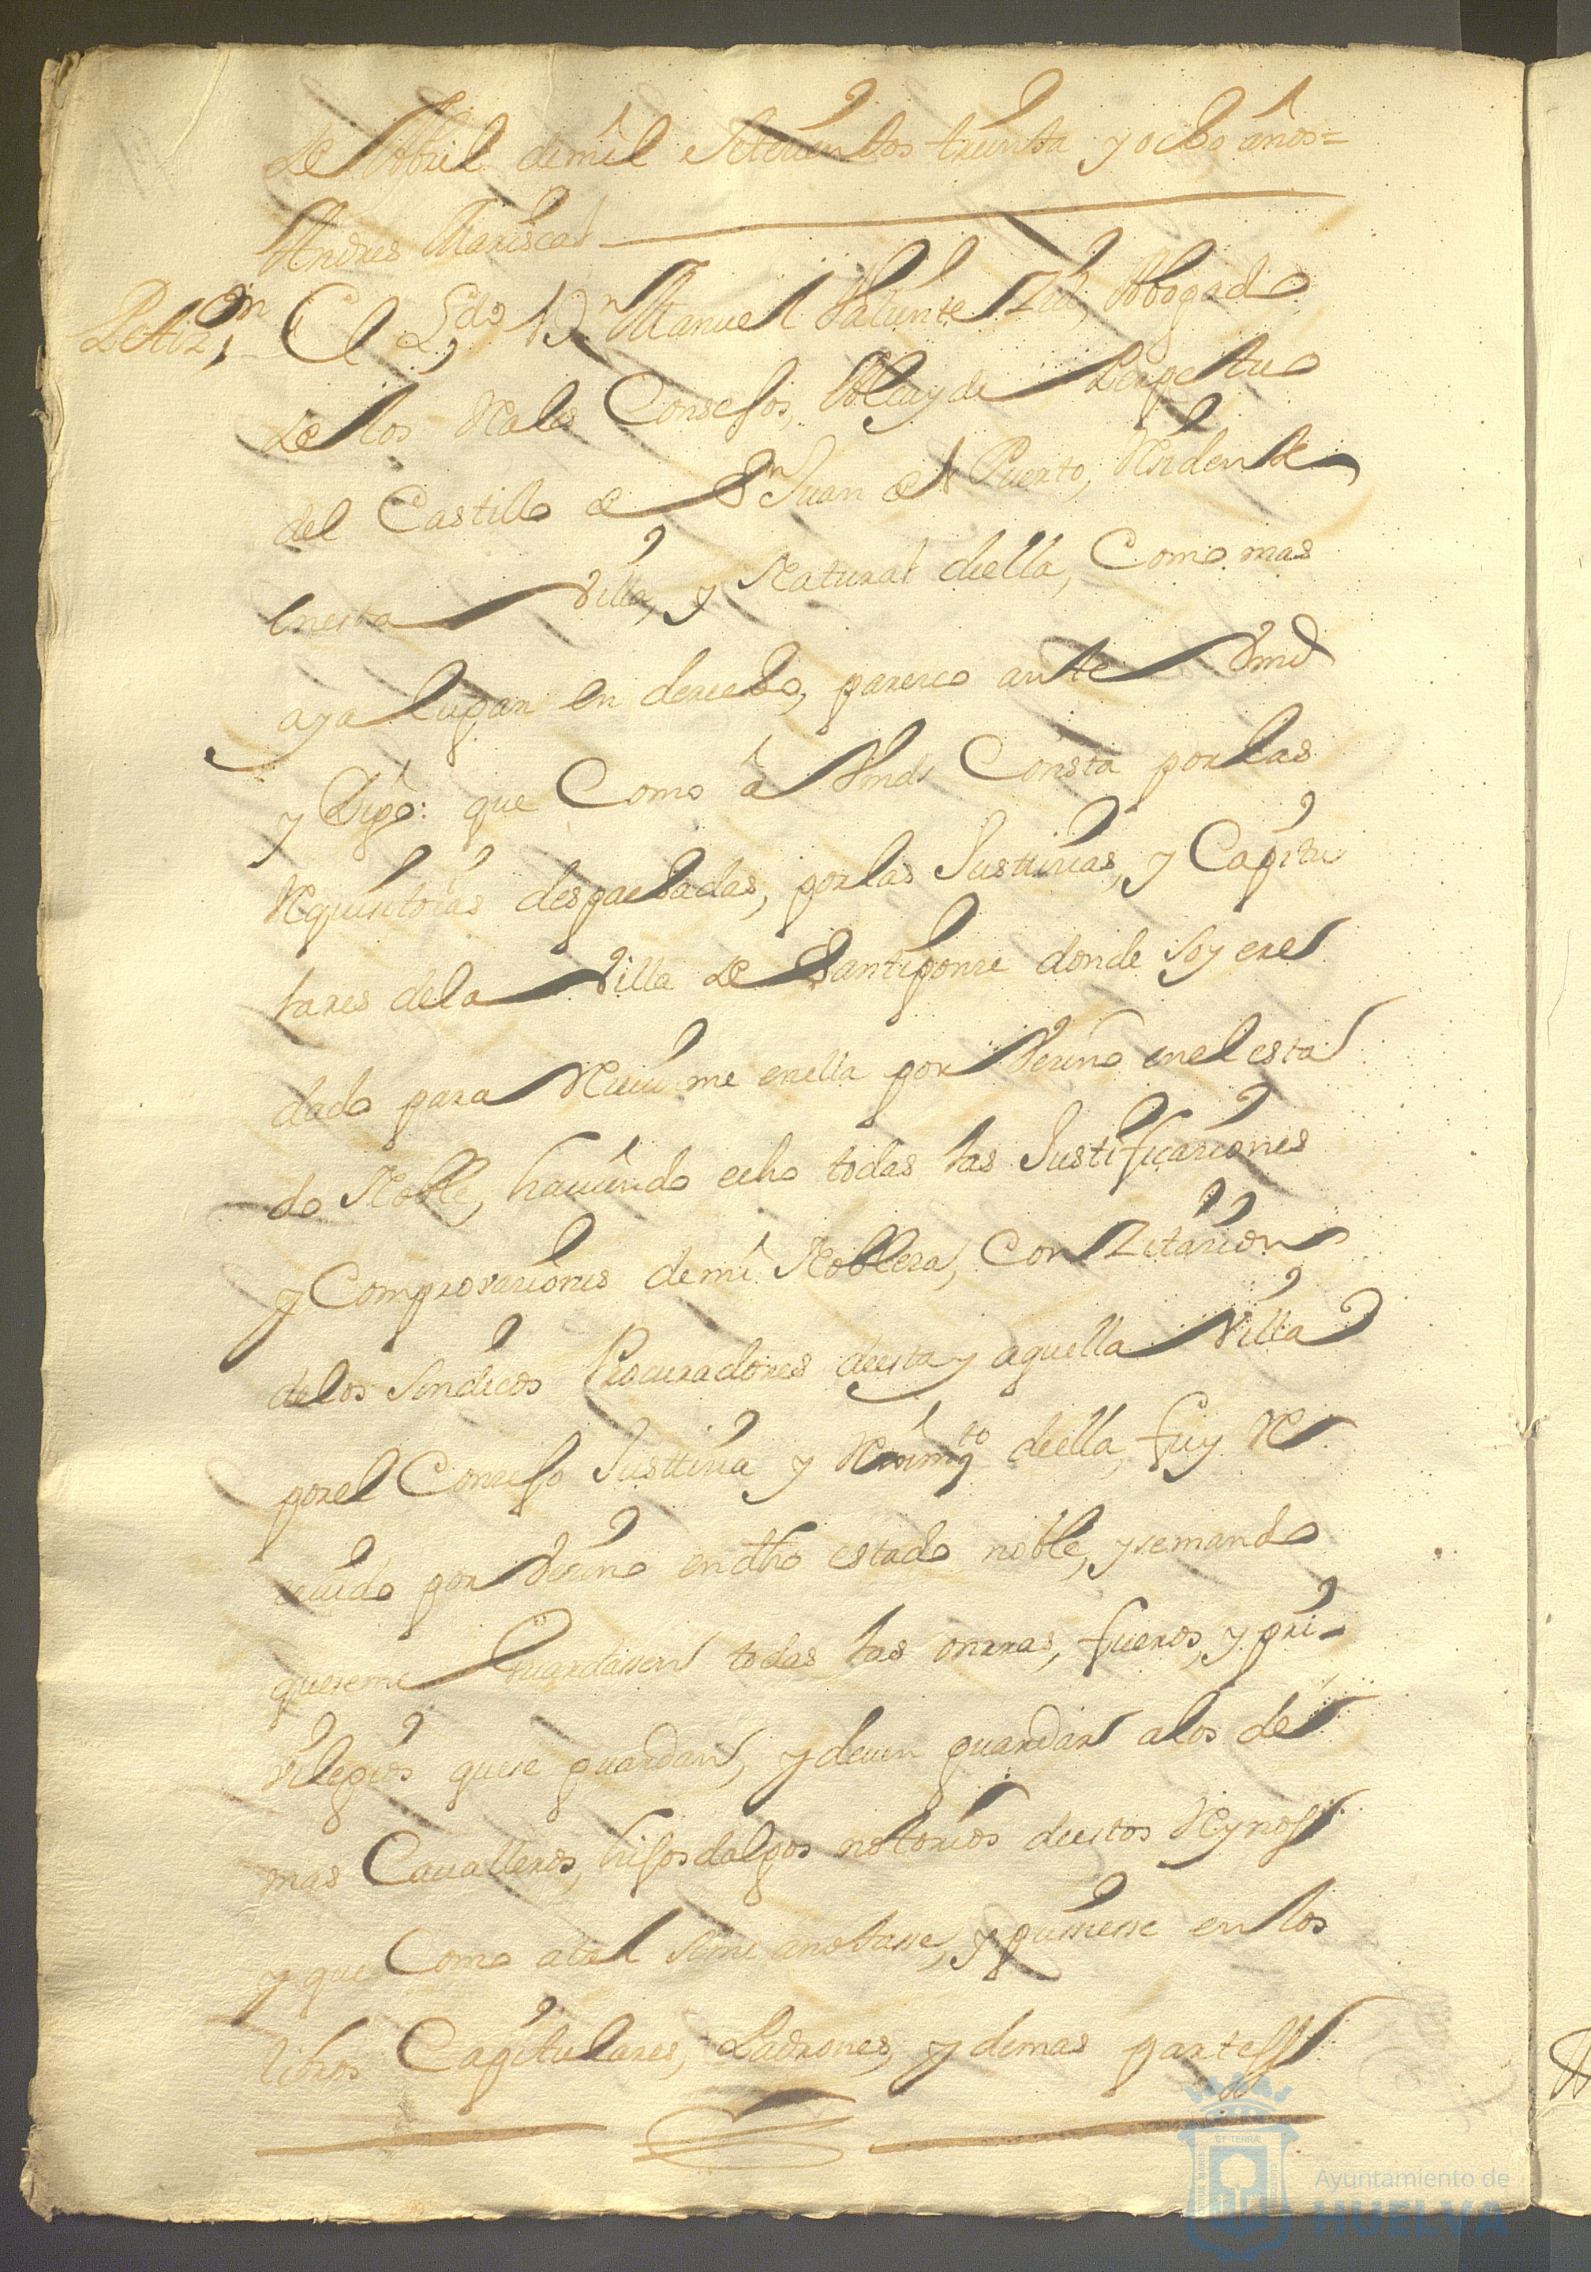 de Abril de mil setecientos treinta y ocho años=
Andres Mariscal
Petiz.on El Lz.do D.n Manuel Valiente Zid, Abogado
de los Rales Consejos, Alcayde Perpetuo
del Castillo de S.n Juan del Puerto, Residente
en esta Villa, y Natural de ella, Como mas
aya lugar en derecho, parezco ante Vmd
y Digo: que Como â Vmds Consta por las
Requisitorias despachadas, por las Justicias, y Capitu
lares de la Villa de Santiponze donde soy ere
dado para Reciuirme en ella por Vecino en el esta
do Noble, hauiendo echo todas las Justificaciones
y Comprovaciones de mi Nobleza, Con Zitacion
de los Sindicos Procuradores de esta y aquella Villa
por el Concejo Justicia y Reximto de ella, fuy Re
ceuido por Vecino en dho estado noble, y se mando
que se me Guardasen todas las onrras, fueros, y pri-
vilegios que se guardan, y deuen guardar a los de
mas Caualleros, hijosdalgos notorios de estos Reynos
y que Como a tal se me anotasse, y pusiesse en los
libros Capitulares, Padrones, y demas partes
Ayuntamiento de
HUELVA